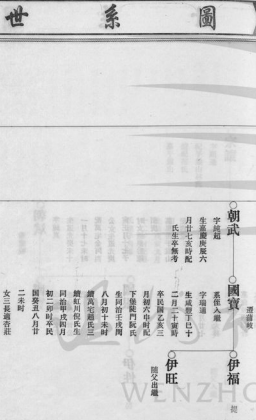 世系圖
遷蒲岐
朝武
字純超
生嘉慶庚辰六
月廿七亥時配
氏生卒無考
國寶
系侄入繼
字瑞通
生咸豐丁巳十
二月二十寅時
卒民國乙亥三
月初六申時配
下堡徒門阮氏
生同治壬戌閏
八月初十未時
續萬宅趙氏三
續虹川倪氏生
同治甲戌四月
初二卯時卒民
國癸丑八月廿
二未時
女三長適杏莊
伊福
伊旺
隨父出繼
WENZHO